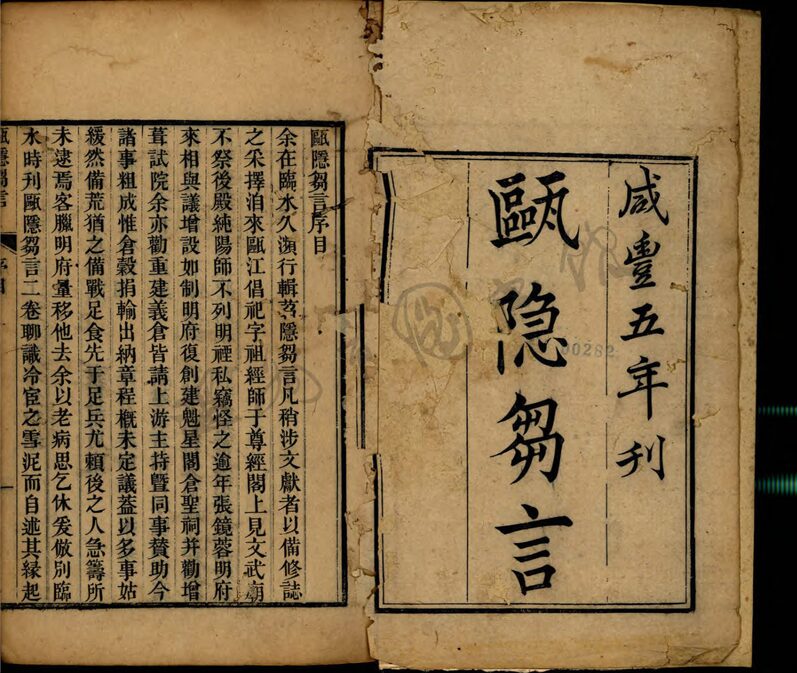 咸豐五年刊
甌隐芻言
00282
甌隱芻言序目
余在臨水久瀕行輯苕隱芻言凡稍涉文獻者以備修誌
之采擇洎來甌江倡祀字祖經師于尊經閣上見文武廟
不祭後殿純陽師不列明禋私竊怪之逾年張鏡蓉明府
來相與議增設如制明府復創建魁星閣倉聖祠并勸增
葺試院余亦勸重建義倉皆請上游主持暨同事賛助今
諸事粗成惟倉穀捐輸出納章程概未定議蓋以多事姑
緩然備荒猶之備戰足食先于足兵尤賴後之人急籌所
未逮焉客臘明府量移他去余以老病思乞休爰倣別臨
水時刊甌隱芻言二卷聊識冷宦之雪泥而自述其緣起
甌隱芻言
序目